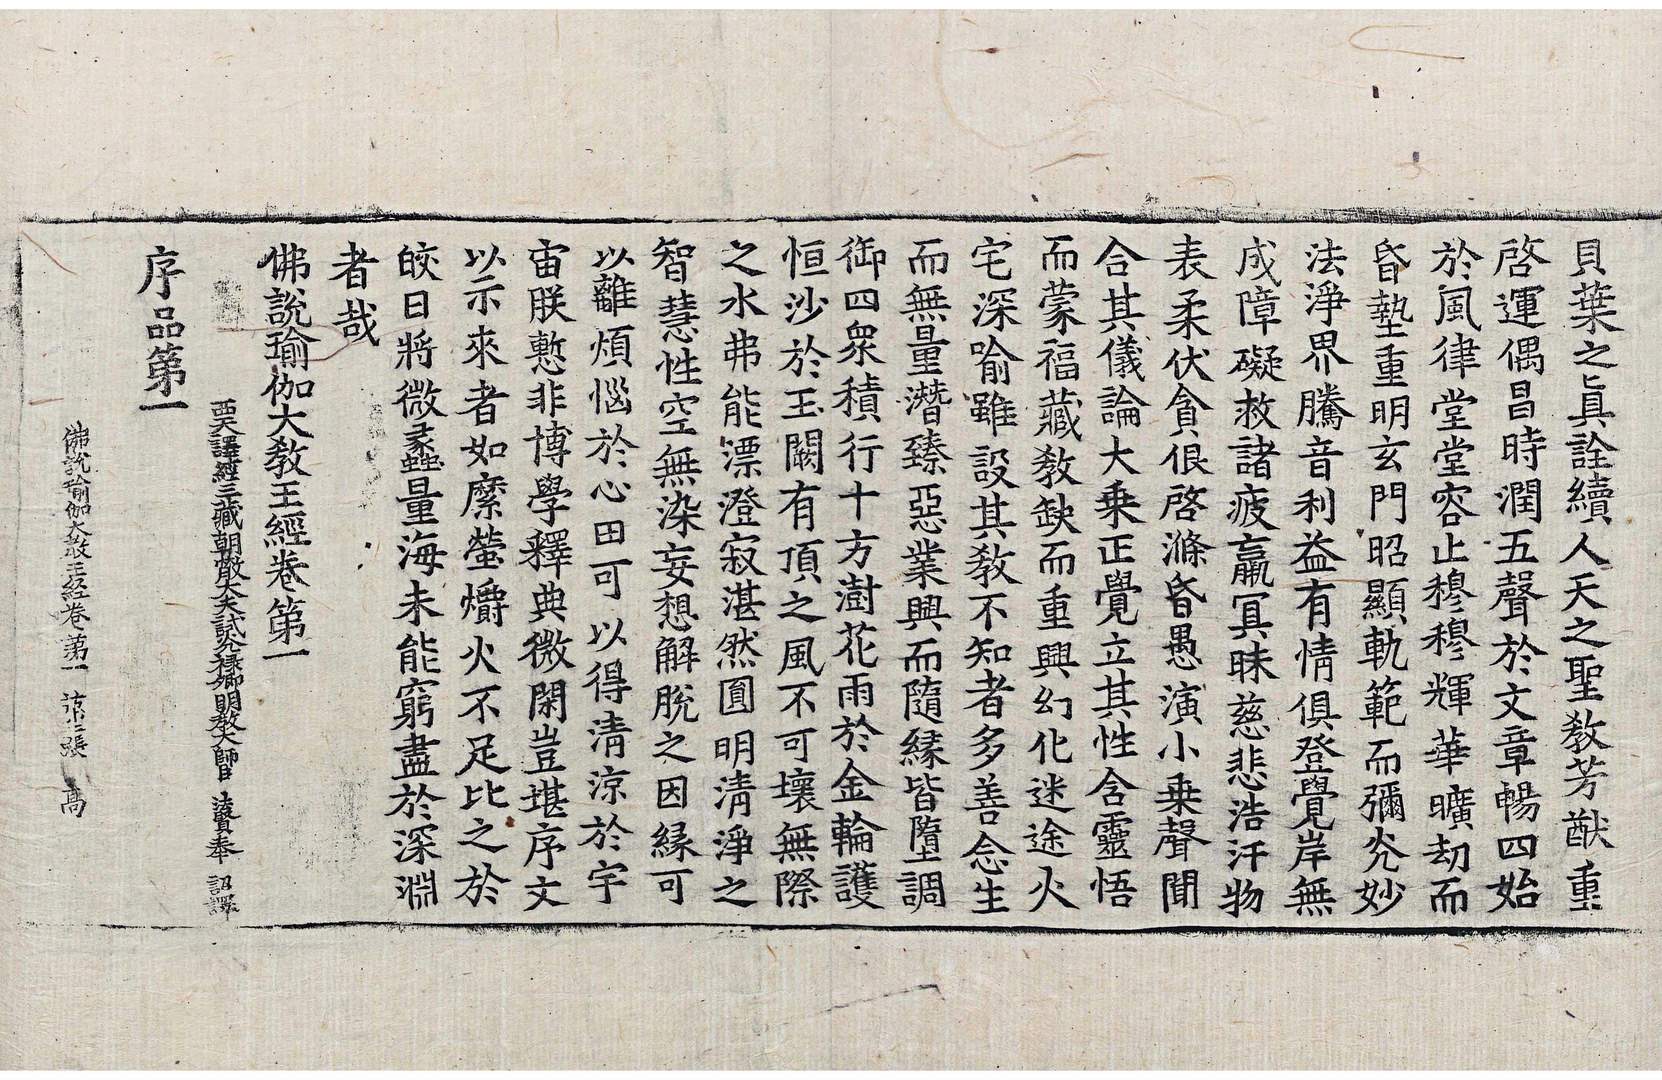 貝葉之眞詮續人天之聖教芳猷重
啓運偶昌時潤五聲於文章暢四始
於風律堂堂容止穆穆輝華曠劫而
昏墊重明玄門昭顯軌範而彌光妙
法淨界騰音利益有情俱登覺岸無
成障礙救諸疲羸冥昧慈悲浩汗物
表柔伏貪佷啓滌昏愚演小乗聲聞
合其儀論大乗正覺立其性含靈悟
而蒙福藏教缺而重興幻化迷途火
宅深喻雖設其教不知者多善念生
而無量潛臻惡業興而隨緣皆墮調
御四衆積行十方澍花雨於金輪護
恒沙於玉闕有頂之風不可壞無際
之水弗能漂澄寂湛然圓明清淨之
智慧性空無染妄想解脫之因縁可
以離煩惱於心田可以得清涼於宇
宙朕慙非博學釋典微閑豈堪序文
以示來者如縻螢爝火不足比之於
皎日將微蠡量海未能窮盡於深淵
者哉
佛說瑜伽大教王經卷第一
西天譯經三藏朝散大夫試光祿卿明教大師臣 法賢奉 詔譯
序品第一
佛說瑜伽大教王經卷第一 第二張 高